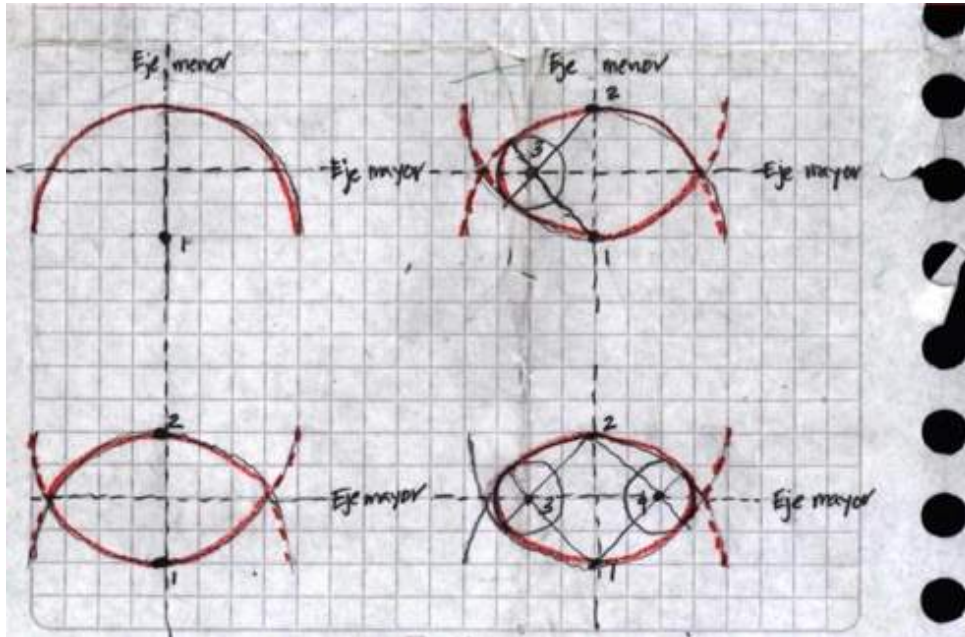 Eje menor
Eje mayor
1
Eje menor
2
3
Eje mayor
1
2
Eje mayor
1
2
3 4
Eje mayor
1